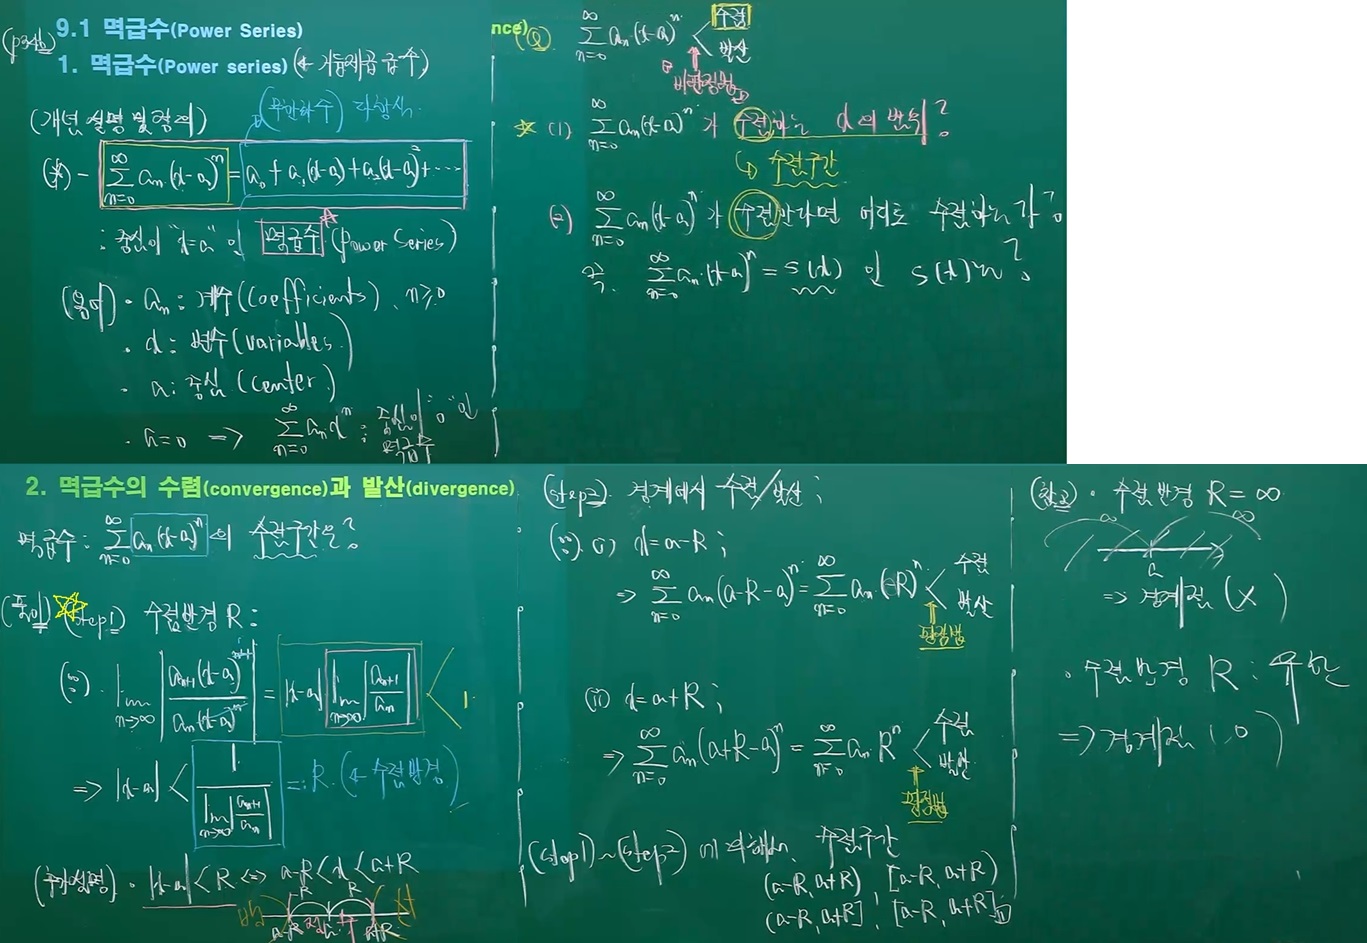 9.1 멱급수(Power Series)
(p346)
1. 멱급수(Power series) (← 거듭제곱 급수)
(개념 설명 및 형태)
(무한차수) 다항식.
(*) - ∑_{n=0}^{∞} aₙ(x-a)ⁿ = a₀ + a₁(x-a) + a₂(x-a)² + ⋯
: 중심이 "x=a" 인 멱급수 (Power Series)
(용어) · aₙ : 계수(coefficients), n≥0
· x : 변수(variables)
· a : 중심(center)
· a=0 => ∑_{n=0}^{∞} aₙxⁿ : 중심이 "0"인 멱급수
nce) (Q) ∑_{n=0}^{∞} aₙ(x-a)ⁿ < 수렴 발산
↑ 비판정법
☆ (1) ∑_{n=0}^{∞} aₙ(x-a)ⁿ가 수렴하는 x의 범위?
↳ 수렴구간
(2) ∑_{n=0}^{∞} aₙ(x-a)ⁿ가 수렴한다면 어디로 수렴하는가?
즉. ∑_{n=0}^{∞} aₙ(x-a)ⁿ = S(x) 인 S(x)는?
2. 멱급수의 수렴(convergence)과 발산(divergence)
멱급수 : ∑_{n=0}^{∞} aₙ(x-a)ⁿ의 수렴구간은?
(풀이) ☆ (step1) 수렴반경 R :
(∵) · lim_{n→∞} |aₙ₊₁(x-a)ⁿ⁺¹ / aₙ(x-a)ⁿ| = |x-a| lim_{n→∞} |aₙ₊₁/aₙ| < 1.
=> |x-a| < 1 / lim_{n→∞}|aₙ₊₁/aₙ| =: R. (← 수렴반경)
(추가설명) · |x-a| < R <=> a-R < x < a+R
R R
a-R a a+R
(step2). 경계에서 수렴/발산 ;
(∵). (i) x=a-R ;
=> ∑_{n=0}^{∞} aₙ(a-R-a)ⁿ = ∑_{n=0}^{∞} aₙ(-R)ⁿ < 수렴 발산
↑ 판정법
(ii) x=a+R ;
=> ∑_{n=0}^{∞} aₙ(a+R-a)ⁿ = ∑_{n=0}^{∞} aₙRⁿ < 수렴 발산
↑ 판정법
(step1)~(step2)에 의해서, 수렴구간
(a-R, a+R), [a-R, a+R)
(a-R, a+R], [a-R, a+R]
(참고) · 수렴반경 R = ∞
∞ ∞
a
=> 경계점 (X)
· 수렴반경 R : 유한
=> 경계점 (O)